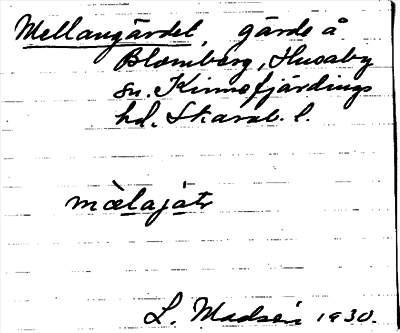 Mellangärdet, gärde å
Blomberg, Husaby
sn. Kinnefjärdings
hd. Skarab. l.
mæ̀lajátʀ
L. Madsén 1930.